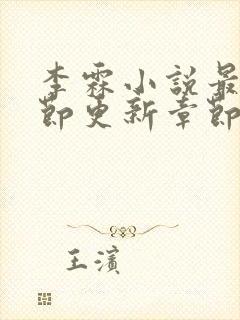 李霖小說最
節更新章節
王濱